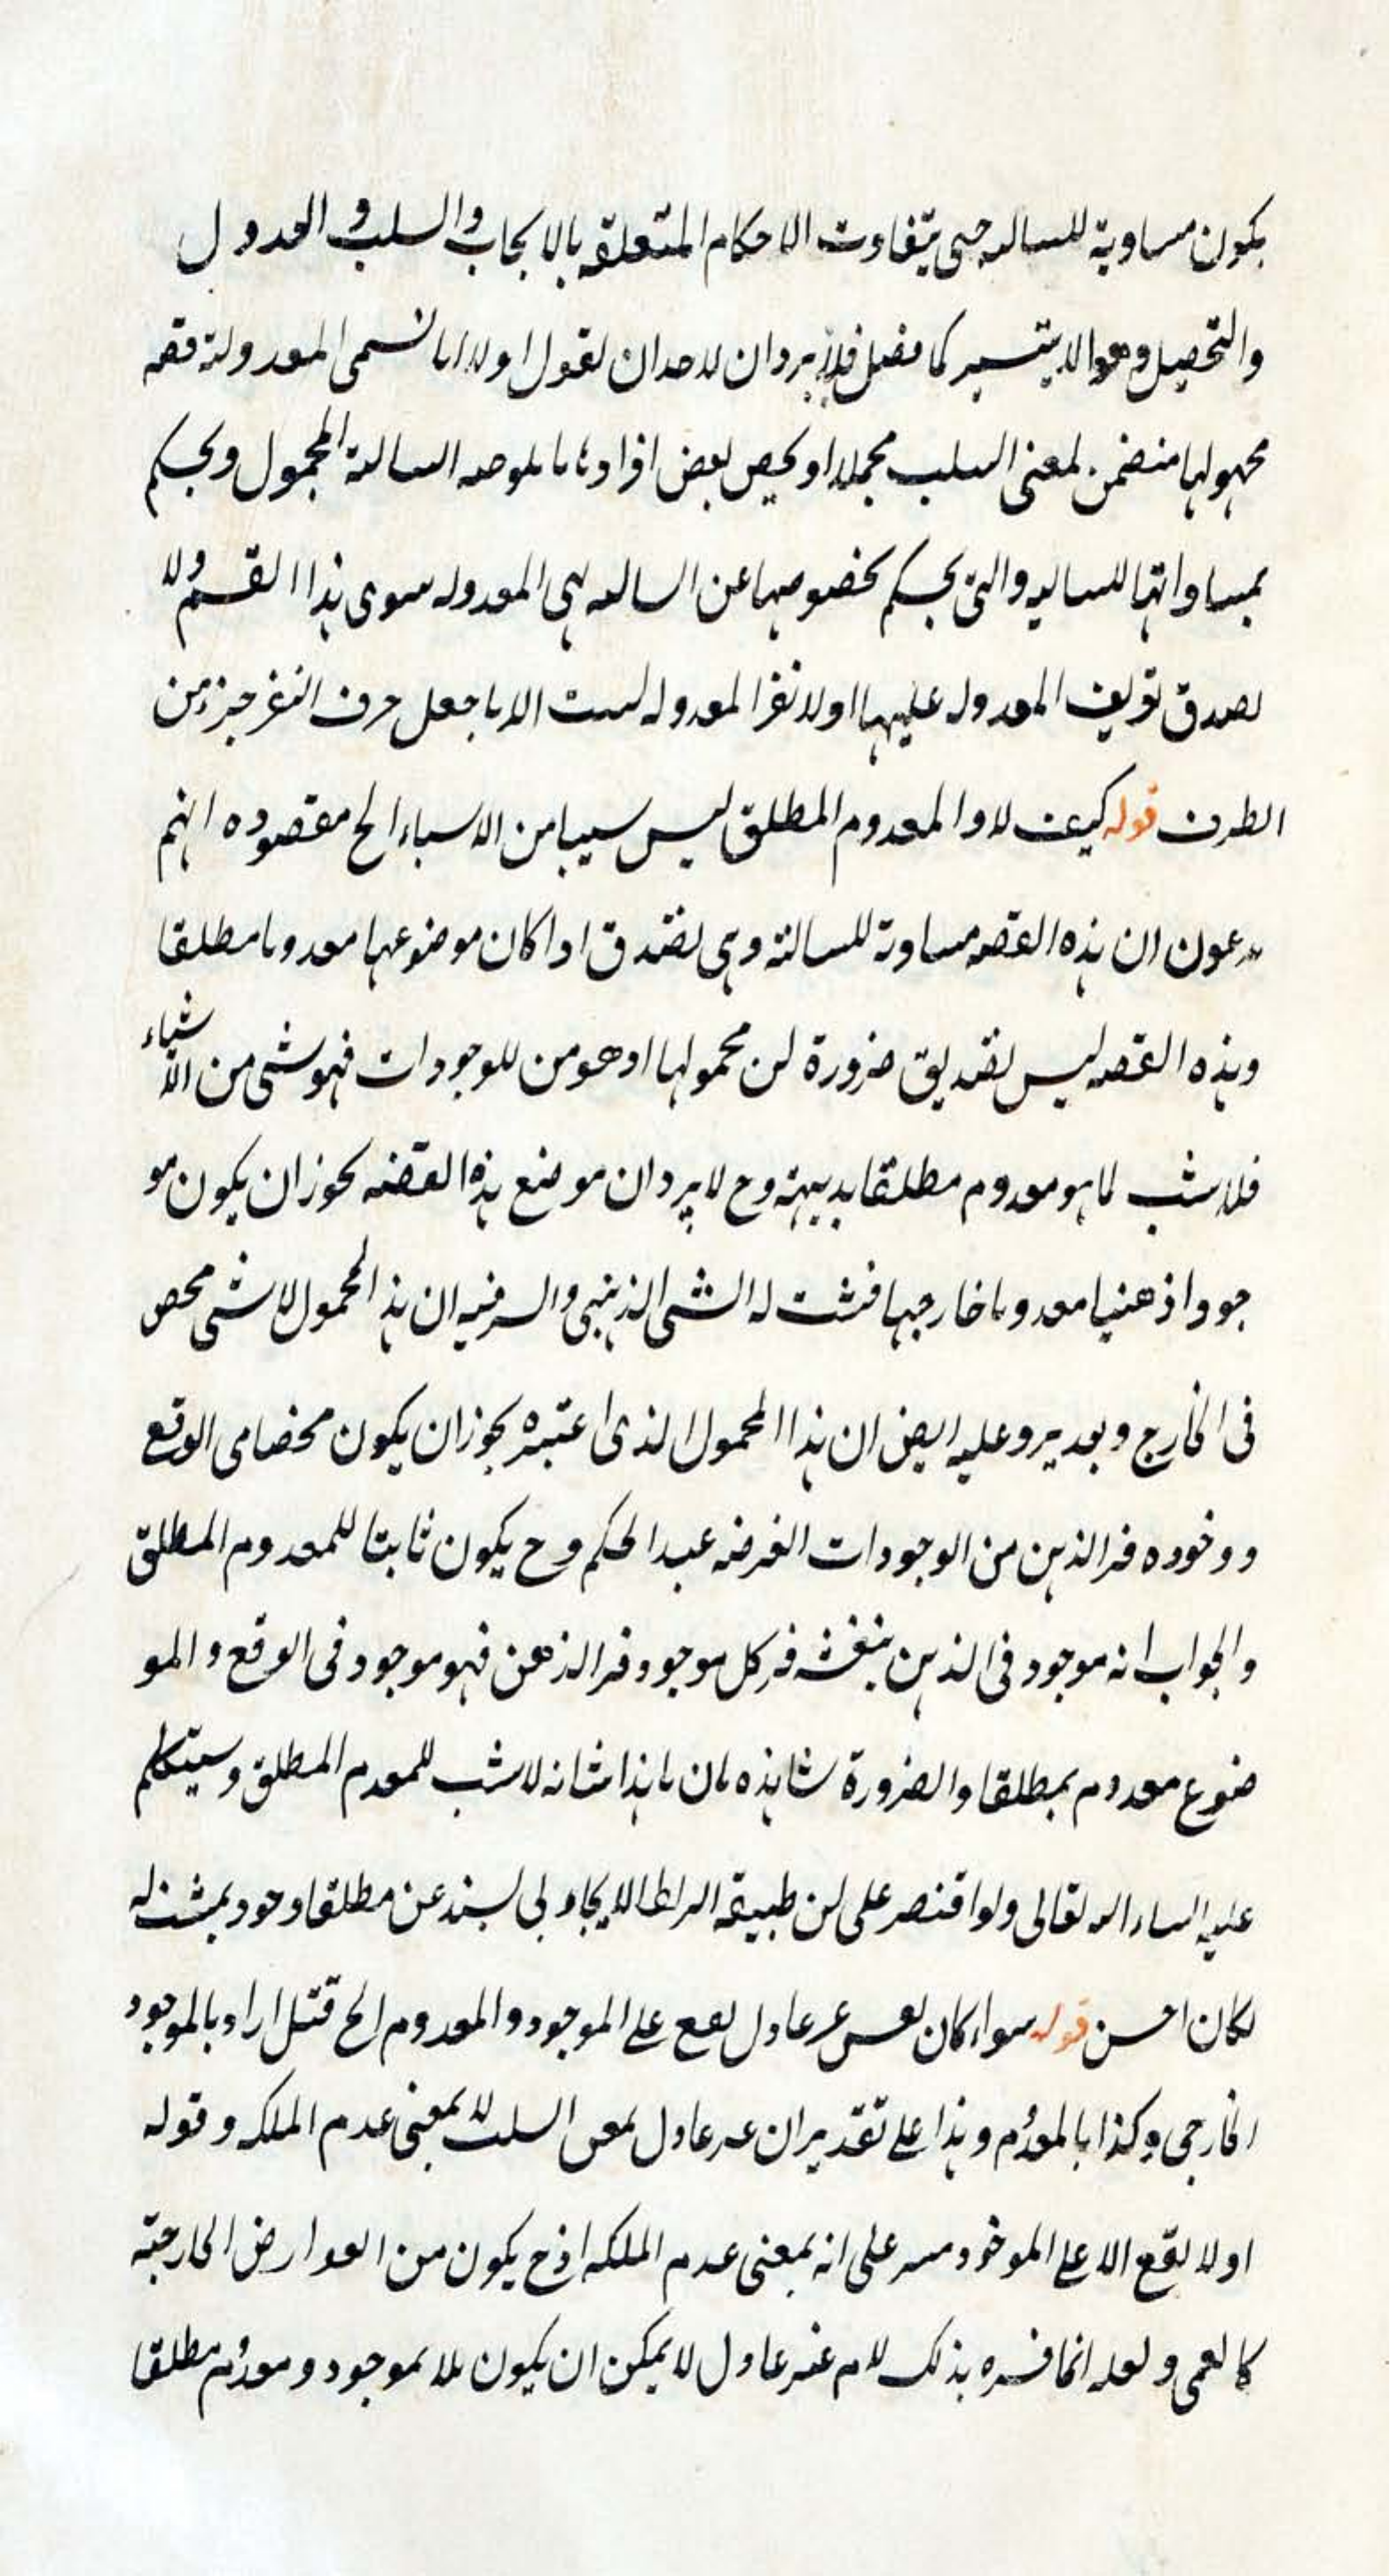 يكون مساوية للسالبه حتى يتفاوت الاحكام المتعلقه بالايجاب والسلب و العدول
والتحصيل وهو الا يتسير كما فصل فلا يرد ان لاحد ان يقول اولا انا نسمى المعدولة قضيه
محمولها متضمن لمعنى السلب مجملا او يخص بعض افرادها بالموجبه السالبة المحمول ويحكم
بمساواتها للسالبه والتى يحكم بخصوصها عن السالبه هى المعدوله سوى هذا القسم ولا
يصدق تعريف المعدوله عليها اولا نفر المعدوله ليست الا ما جعل حرف النفى جزء من
الطرف قوله كيف لا و المعدوم المطلق ليس شيئا من الاشياء الخ مقصوده انهم
يدعون ان هذه القضيه مساوية للسالبة وهى تصدق اذا كان موضوعها معدوما مطلقا
وهذه القضيه ليس تصديق ضرورة لان محمولها اذ هو من الموجودات فهو شئ من الاشياء
فلا يثبت لما هو معدوم مطلقا بديهة وح لا يرد ان موضع هذه القضيه يجوز ان يكون مو
جودا ذهنيا معدوما خارجيا فيثبت له الشئ الذهنى والسر فيه ان هذا المحمول لا شئ محض
فى الخارج وبعد يرد عليه ايض ان هذا المحمول الذى اعتبره يجوز ان يكون محضا فى الوقع
و وجوده فى الذهن من الوجودات الفرضيه عند الحكم وح يكون ثابتا للمعدوم المطلق
والجواب انه موجود فى الذهن بنفسه فى كل موجود فى الذهن فهو موجود فى الوقع و المو
ضوع معدوم مطلقا والضرورة شاهده بان ما هذا شانه لا يثبت للمعدم المطلق وسيتكلم
عليه انشاء الله تعالى ولو اقتصر على ان طبيعة الربط الايجابى يستدعى مطلقا وجود يثبت له
لكان احسن قوله سواء كان نفس غير عادل يقع على الموجود و المعدوم الخ قيل اراد بالموجود
الخارجى وكذا بالمعدوم وهذا على تقدير ان غير عادل بمعنى السلب لا بمعنى عدم الملكه و قوله
او لا يقع الا على الموجود مبنى على انه بمعنى عدم الملكه اذ ح يكون من العوارض الخارجية
كالعمى و لعله انما فسره بذلك لان غير عادل لا يمكن ان يكون بلا موجود و معدوم مطلقا